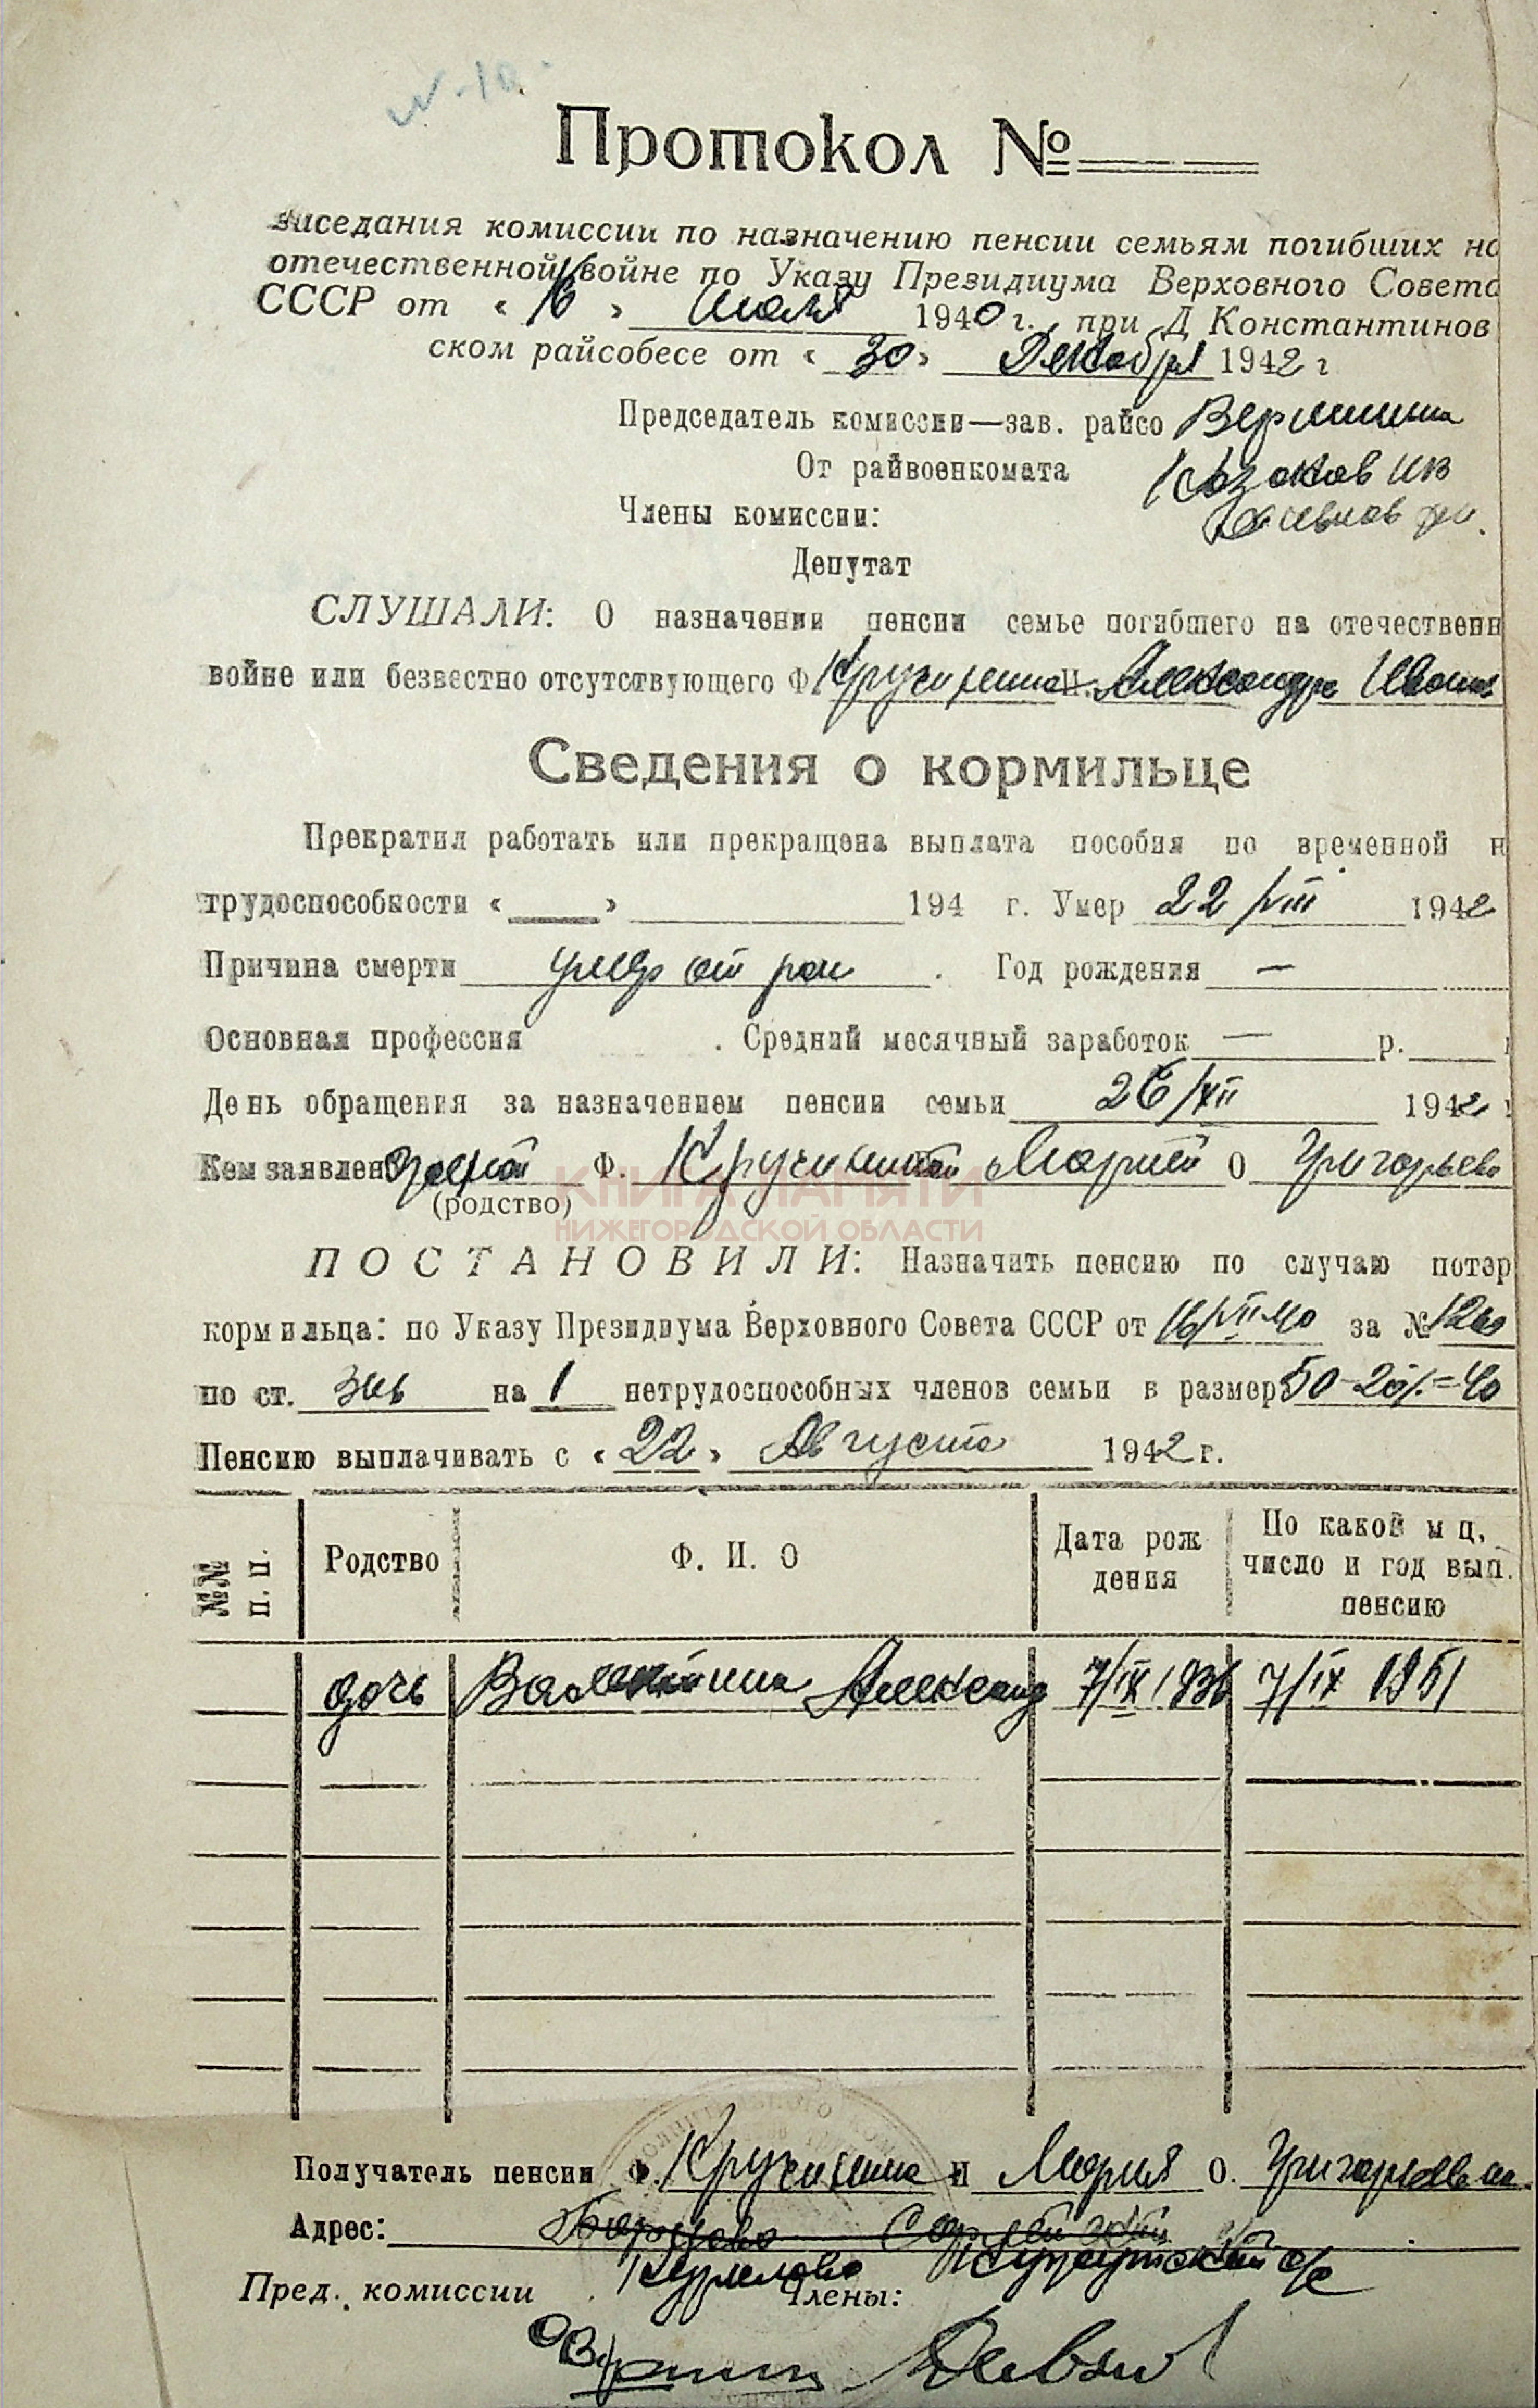 Протокол №
заседания комиссии по назначению пенсии семьям погибших на
отечественной войне по Указу Президиума Верховного Совета
СССР от « 16 » Июля 1940 г. при Д Константинов
ском райсобесе от « 30 » Декабря 1942 г
Председатель комиссии—зав. райсо Вершинина
От райвоенкомата Казаков ИВ
Члены комиссии:
Депутат
СЛУШАЛИ: О назначении пенсии семье погибшего на отечественн
войне или безвестно отсутствующего Ф. Кручинина И. Александра Иван
Сведения о кормильце
Прекратил работать или прекращена выплата пособия по временной н
трудоспособности « » 194 г. Умер 22/VIII 1942
Причина смерти умер от ран . Год рождения —
Основная профессия . Средний месячный заработок — р.
День обращения за назначением пенсии семьи 26/XII 1942 г
Кем заявлено женой Ф. Кручининой Марией О Григорьевн
(родство)
КНИГА ПАМЯТИ
НИЖЕГОРОДСКОЙ ОБЛАСТИ
ПОСТАНОВИЛИ: Назначить пенсию по случаю потер
кормильца: по Указу Президиума Верховного Совета СССР от 16/VII 40 за № 1269
по ст. на 1 нетрудоспособных членов семьи в размер 50-20%=40
Пенсию выплачивать с « 22 » Августа 1942 г.
№№ п. п. Родство Ф. И. О Дата рождения По какой мц, число и год вып. пенсию
дочь Валентина Александ 7/IX 1936 7/IX 1951
Получатель пенсии Ф. Кручинина И Мария О. Григорьевна
Адрес: Борцово
Курилово с/с
Пред. комиссии Члены: